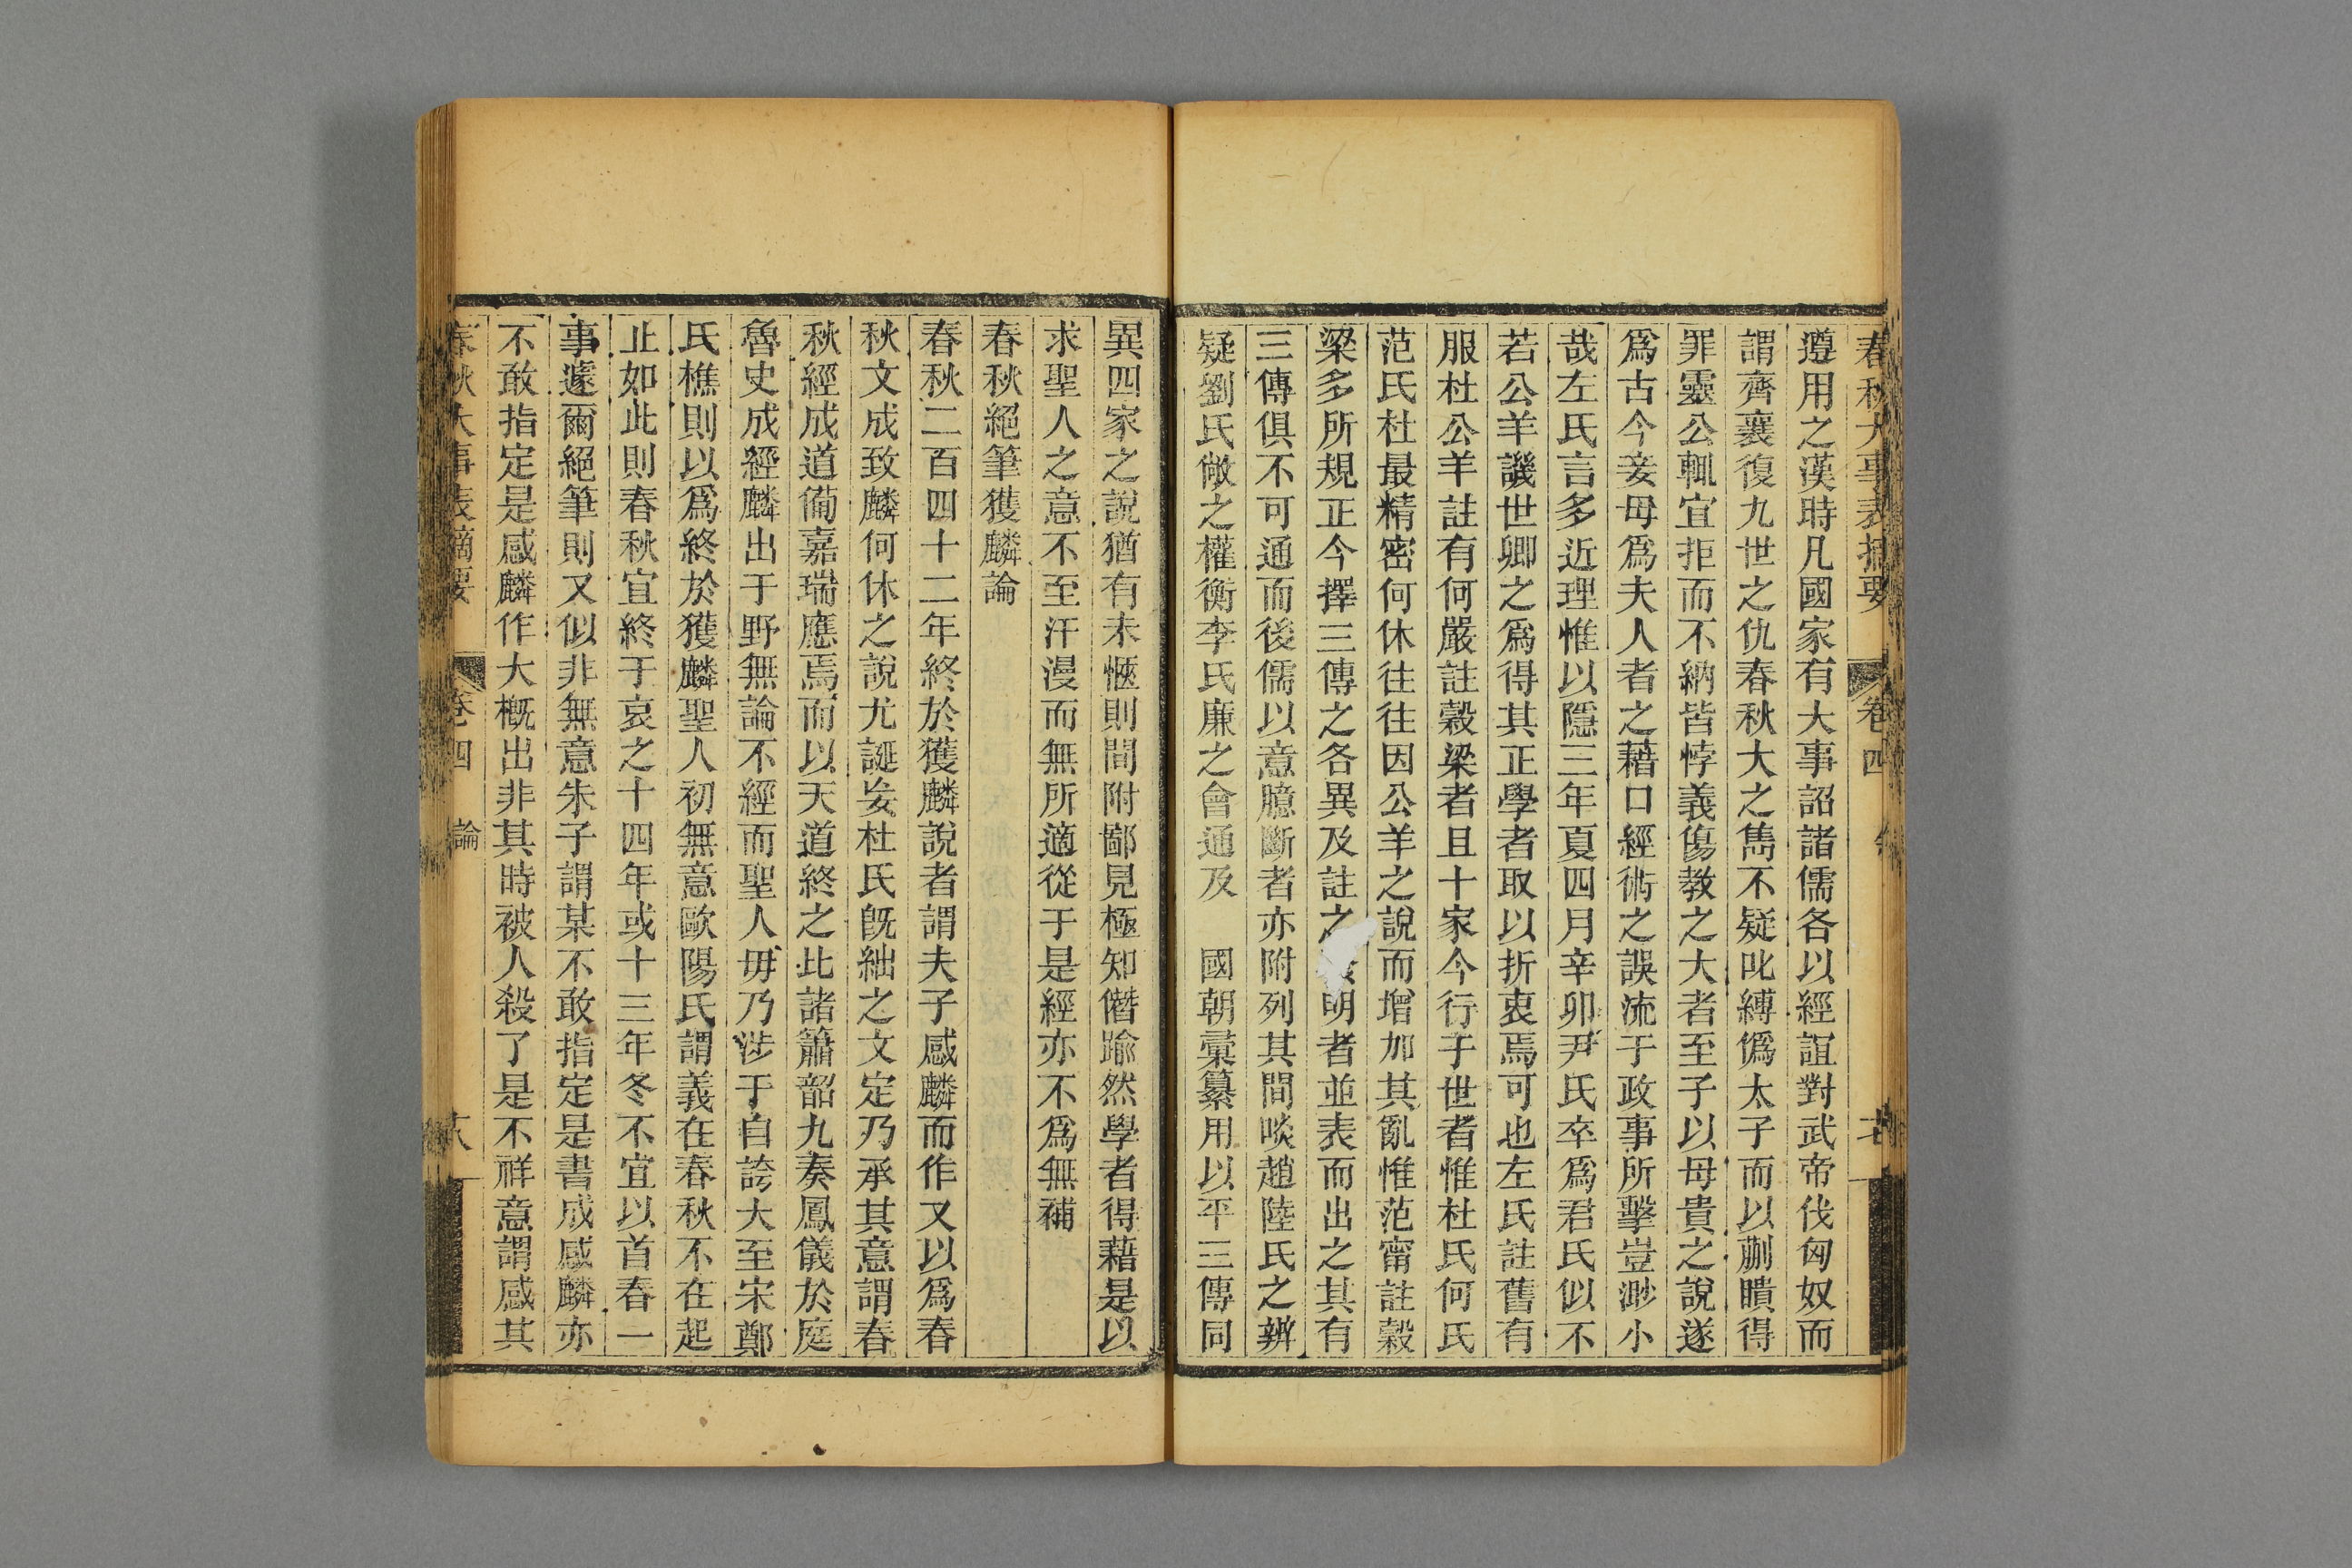 春秋大事表摘要　卷四
遵用之漢時凡國家有大事詔諸儒各以經誼對武帝伐匈奴而
謂齊襄復九世之仇春秋大之雋不疑叱縛僞太子而以蒯瞶得
罪靈公輒宜拒而不納皆悖義傷教之大者至子以母貴之說遂
爲古今妾母爲夫人者之藉口經術之誤流于政事所擊豈渺小
哉左氏言多近理惟以隱三年夏四月辛卯尹氏卒爲君氏似不
若公羊譏世卿之爲得其正學者取以折衷焉可也左氏註舊有
服杜公羊註有何嚴註穀梁者且十家今行于世者惟杜氏何氏
范氏杜最精密何休往往因公羊之說而增加其亂惟范甯註穀
梁多所規正今擇三傳之各異及註之明者並表而出之其有
三傳俱不可通而後儒以意臆斷者亦附列其間啖趙陸氏之辨
疑劉氏敞之權衡李氏廉之會通及　國朝彙纂用以平三傳同
異四家之說猶有未愜則間附鄙見極知僭踰然學者得藉是以
求聖人之意不至汗漫而無所適從于是經亦不爲無補
春秋絕筆獲麟論
春秋二百四十二年終於獲麟說者謂夫子感麟而作又以爲春
秋文成致麟何休之說尤誕妄杜氏旣絀之文定乃承其意謂春
秋經成道備嘉瑞應焉而以天道終之比諸簫韶九奏鳳儀於庭
魯史成經麟出于野無論不經而聖人毋乃涉于自誇大至宋鄭
氏樵則以爲終於獲麟聖人初無意歐陽氏謂義在春秋不在起
止如此則春秋宜終于哀之十四年或十三年冬不宜以首春一
事遽爾絕筆則又似非無意朱子謂某不敢指定是書成感麟亦
不敢指定是感麟作大槪出非其時被人殺了是不祥意謂感其
春秋大事表摘要　卷四　論　十八